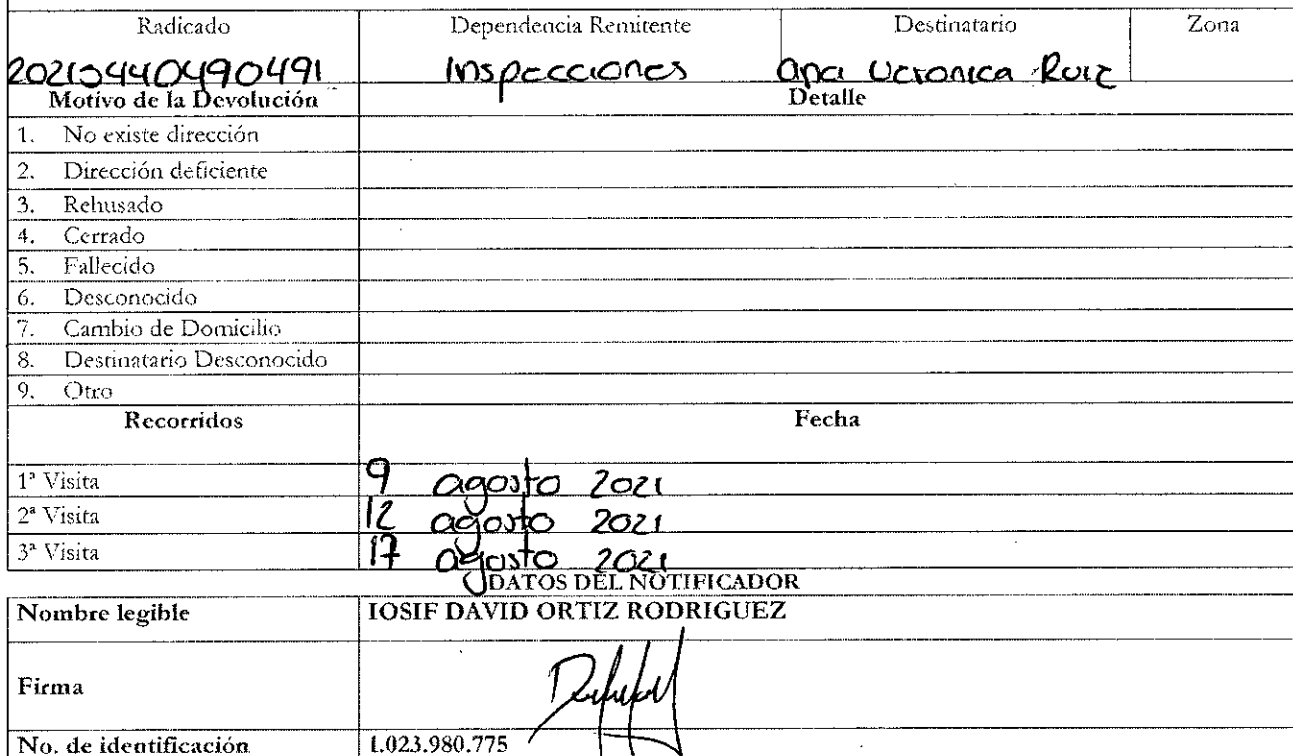 Radicado Dependencia Remitente Destinatario Zona
20215440490491 Inspecciones ana Veronica Ruiz
Motivo de la Devolución Detalle
1. No existe dirección
2. Dirección deficiente
3. Rehusado
4. Cerrado
5. Fallecido
6. Desconocido
7. Cambio de Domicilio
8. Destinatario Desconocido
9. Otro
Recorridos Fecha
1ª Visita 9 agosto 2021
2ª Visita 12 agosto 2021
3ª Visita 17 agosto 2021
DATOS DEL NOTIFICADOR
Nombre legible IOSIF DAVID ORTIZ RODRIGUEZ
Firma
No. de identificación 1.023.980.775